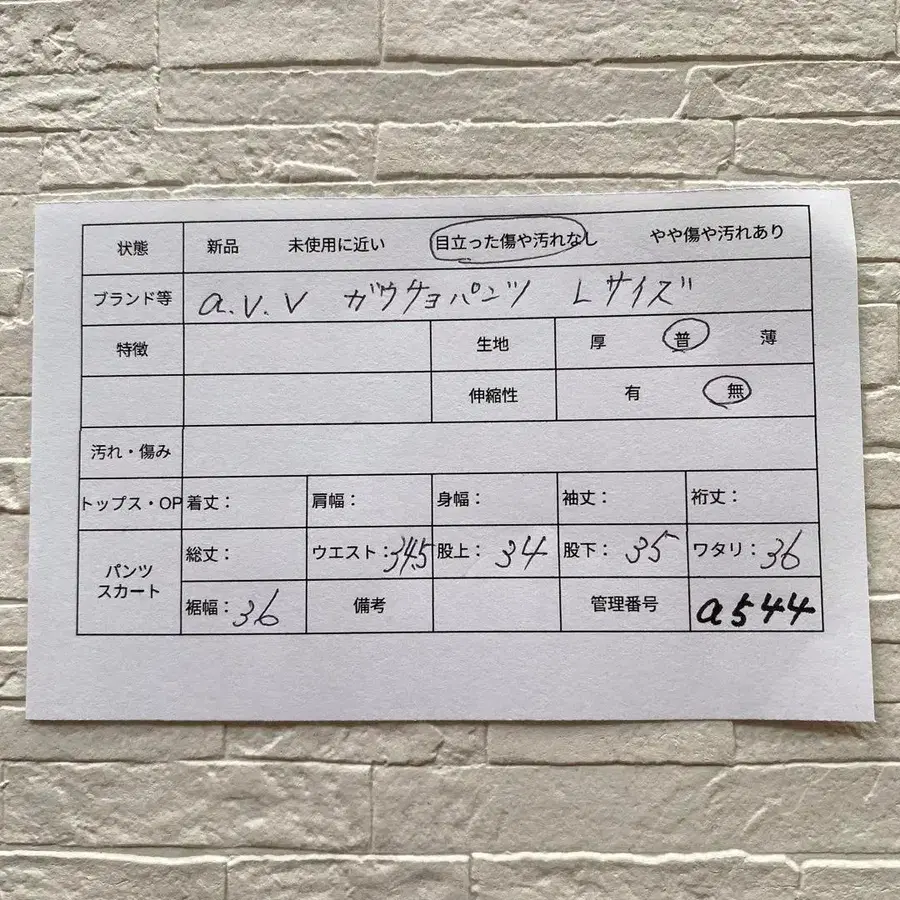 状態 新品 未使用に近い 目立った傷や汚れなし やや傷や汚れあり
ブランド等 a.v.v ガウチョパンツ Lサイズ
特徴 生地 厚 普 薄
伸縮性 有 無
汚れ・傷み
トップス・OP 着丈： 肩幅： 身幅： 袖丈： 裄丈：
パンツ スカート 総丈： ウエスト：34.5 股上：34 股下：35 ワタリ：36
裾幅：36 備考 管理番号 a544